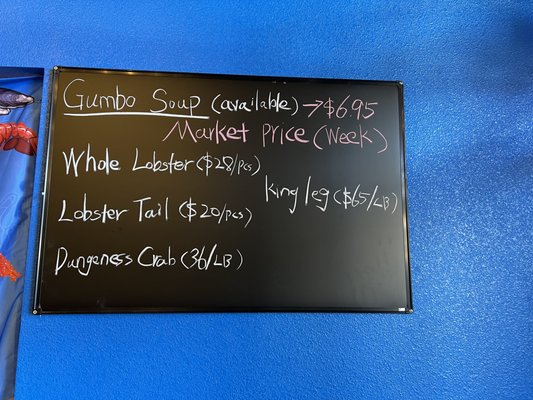 Gumbo Soup (available) → $6.95
Market Price (Week)
Whole Lobster ($28/pcs)
King leg ($65/LB)
Lobster Tail ($20/pcs)
Dungeness Crab (36/LB)